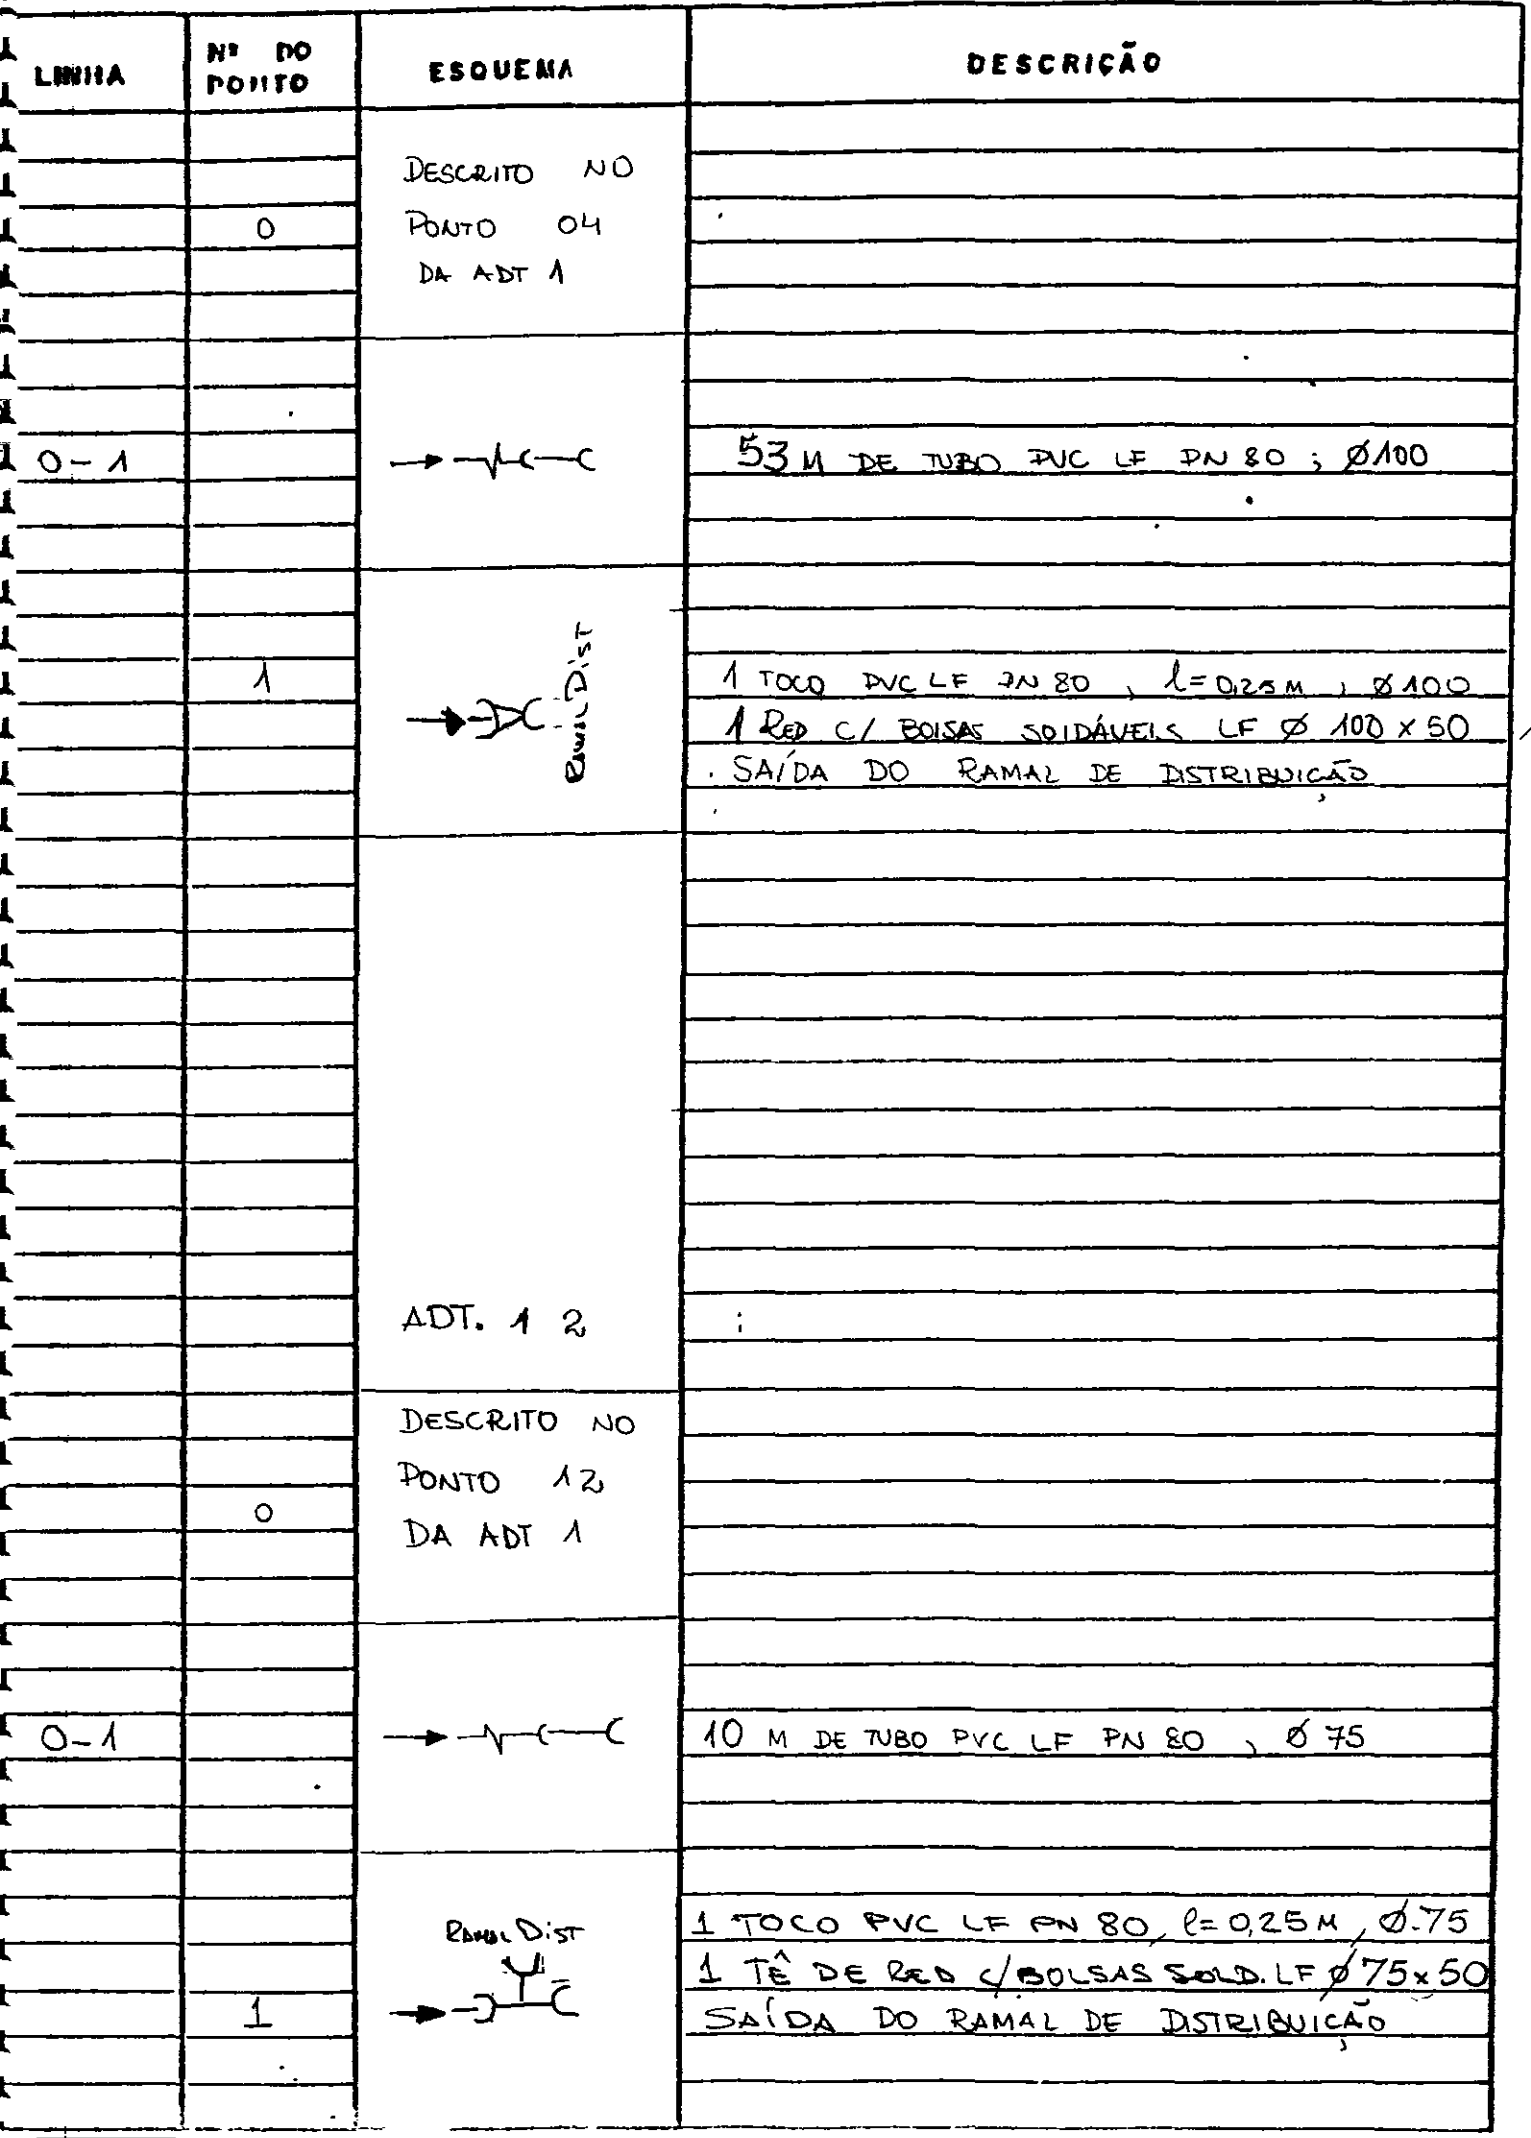 LINHA
Nº DO PONTO
ESQUEMA
DESCRIÇÃO
DESCRITO NO
0
PONTO 04
DA ADT 1
0-1
53 M DE TUBO PVC LF PN 80 ; Ø100
RAMAL DIST
1
1 TOCO PVC LF PN 80 , l=0,25 M , Ø100
1 RED C/ BOLSAS SOLDÁVEIS LF Ø 100 x 50
SAÍDA DO RAMAL DE DISTRIBUIÇÃO
ADT. 1 2
DESCRITO NO
PONTO 12
0
DA ADT 1
0-1
10 M DE TUBO PVC LF PN 80 , Ø 75
RAMAL DIST
1 TOCO PVC LF PN 80, l=0,25 M, Ø.75
1 TÊ DE RED C/BOLSAS SOLD. LF Ø 75x50
1
SAÍDA DO RAMAL DE DISTRIBUIÇÃO